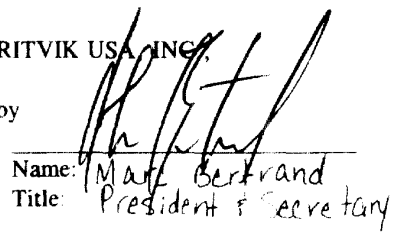 RITVIK USA, INC.,
by
Name: Marc Bertrand
Title: President & Secretary